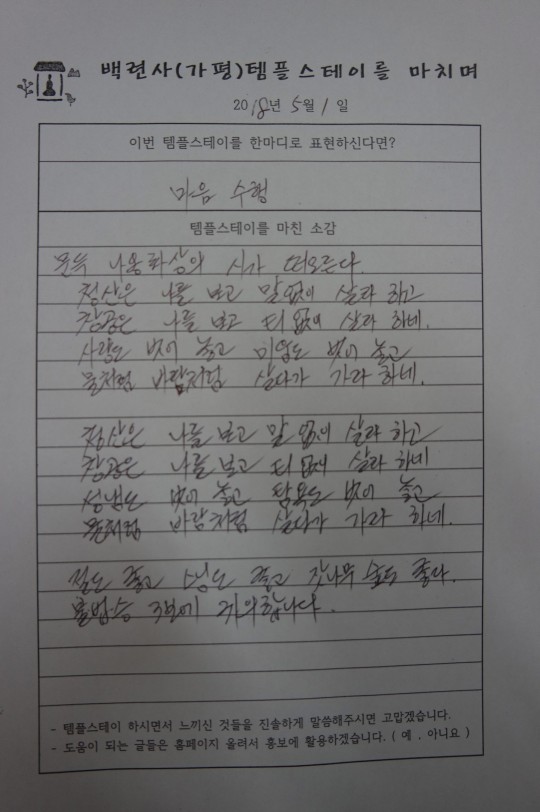 백련사(가평)템플스테이를 마치며
2018년 5월 1일
이번 템플스테이를 한마디로 표현하신다면?
마음 수행
템플스테이를 마친 소감
문득 나옹화상의 시가 떠오른다.
청산은 나를 보고 말 없이 살라 하고
창공은 나를 보고 티 없이 살라 하네.
사랑도 벗어 놓고 미움도 벗어 놓고
물처럼 바람처럼 살다가 가라 하네.
청산은 나를 보고 말 없이 살라 하고
창공은 나를 보고 티 없이 살라 하네
성냄도 벗어 놓고 탐욕도 벗어 놓고
물처럼 바람처럼 살다가 가라 하네.
절도 좋고 스님도 좋고 잣나무 숲도 좋다.
불법승 3보에 귀의합니다.
- 템플스테이 하시면서 느끼신 것들을 진솔하게 말씀해주시면 고맙겠습니다.
- 도움이 되는 글들은 홈페이지 올려서 홍보에 활용하겠습니다. ( 예 . 아니요 )